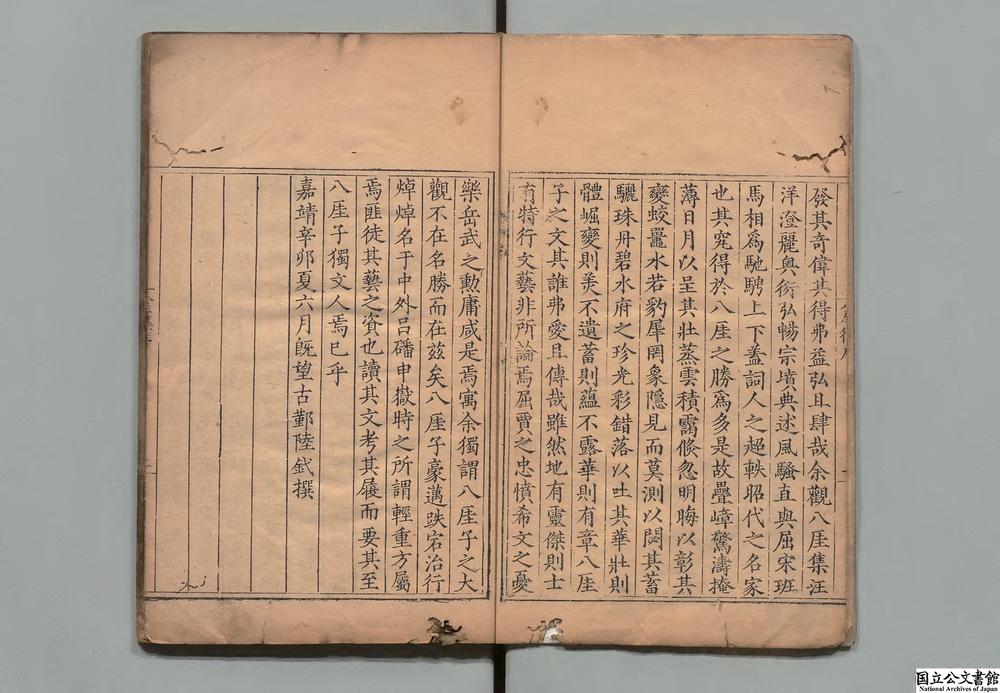 發其奇偉其得弗益弘且肆哉余觀八厓集汪
洋澄麗奧衍弘暢宗墳典述風騷直與屈宋班
馬相爲馳騁上下葢詞人之超軼昭代之名家
也其究得於八厓之勝爲多是故疊嶂驚濤掩
薄日月以呈其壯蒸雲積靄倐忽明晦以彰其
變蛟鼉水若豹犀罔象隱見而莫測以閟其蓄
驪珠丹碧水府之珍光彩錯落以吐其華壯則
體崛變則羙不遺蓄則蘊不露華則有章八厓
子之文其誰弗愛且傳哉雖然地有靈傑則士
有特行文藝非所論焉屈賈之忠憤希文之憂
樂岳武之勲庸咸是焉寓余獨謂八厓子之大
觀不在名勝而在茲矣八厓子豪邁跌宕治行
焯焯名于中外吕磻申嶽時之所謂輕重方屬
焉匪徒其藝之資也讀其文考其履而要其至
八厓子獨文人焉已乎
嘉靖辛卯夏六月旣望古鄞陸釴撰
国立公文書館
National Archives of Japan